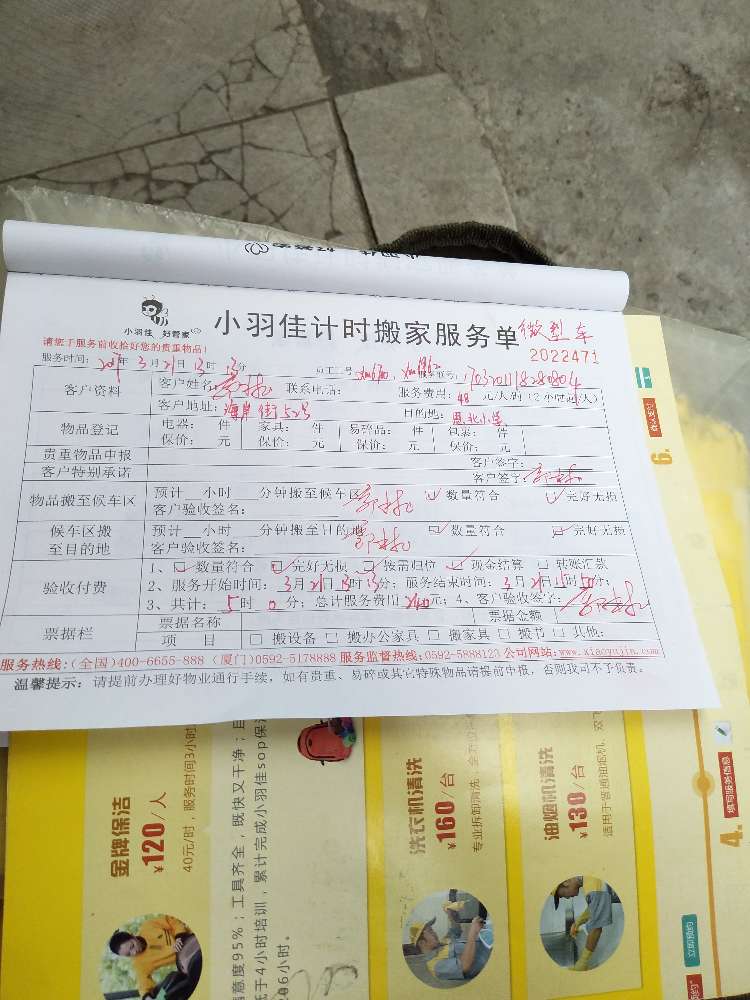 小羽佳 好管家
小羽佳计时搬家服务单 微型车
请您于服务前收拾好您的贵重物品!
2022471
服务时间: 年 3 月 21 日 13 时 13 分 员工工号
客户资料 客户姓名: 联系电话: 服务费用: 48 元/人/时 (2小时起/人)
客户地址: 海岸街52号 目的地:
物品登记 电器: 件 家具: 件 易碎品: 件 包裹: 件
保价: 元 保价: 元 保价: 元 保价: 元
贵重物品申报 客户签字:
客户特别承诺 客户签字:
物品搬至候车区 预计 小时 分钟搬至候车区 数量符合 完好无损
客户验收签名:
候车区搬至目的地 预计 小时 分钟搬至目的地 数量符合 完好无损
客户验收签名:
验收付费 1、 数量符合 完好无损 按需归位 现金结算 转账汇款
2、服务开始时间: 3月21日13时13分; 服务结束时间: 3月21日15时 分;
3、共计: 5 时 0 分; 总计服务费用 元; 4、客户验收签字:
票据栏 票据名称 票据金额
项 目 搬设备 搬办公家具 搬家具 搬书 其他:
服务热线:(全国)400-6655-888 (厦门)0592-5178888 服务监督热线:0592-5888123 公司网站:www.xiaoyujia.com
温馨提示: 请提前办理好物业通行手续, 如有贵重、易碎或其它特殊物品请提前申报, 否则我司不予负责。
金牌保洁
¥120/人
40元/时, 服务时间3小时
意度95%; 工具齐全, 既快又干净;
低于4小时培训, 累计完成小羽佳sop保洁
206小时。
洗衣机清洗
¥160/台
专业拆卸清洗
油烟机清洗
¥130/台
适用于普通油烟机
6.
确认支付
4.
填写服务信息
立即预约